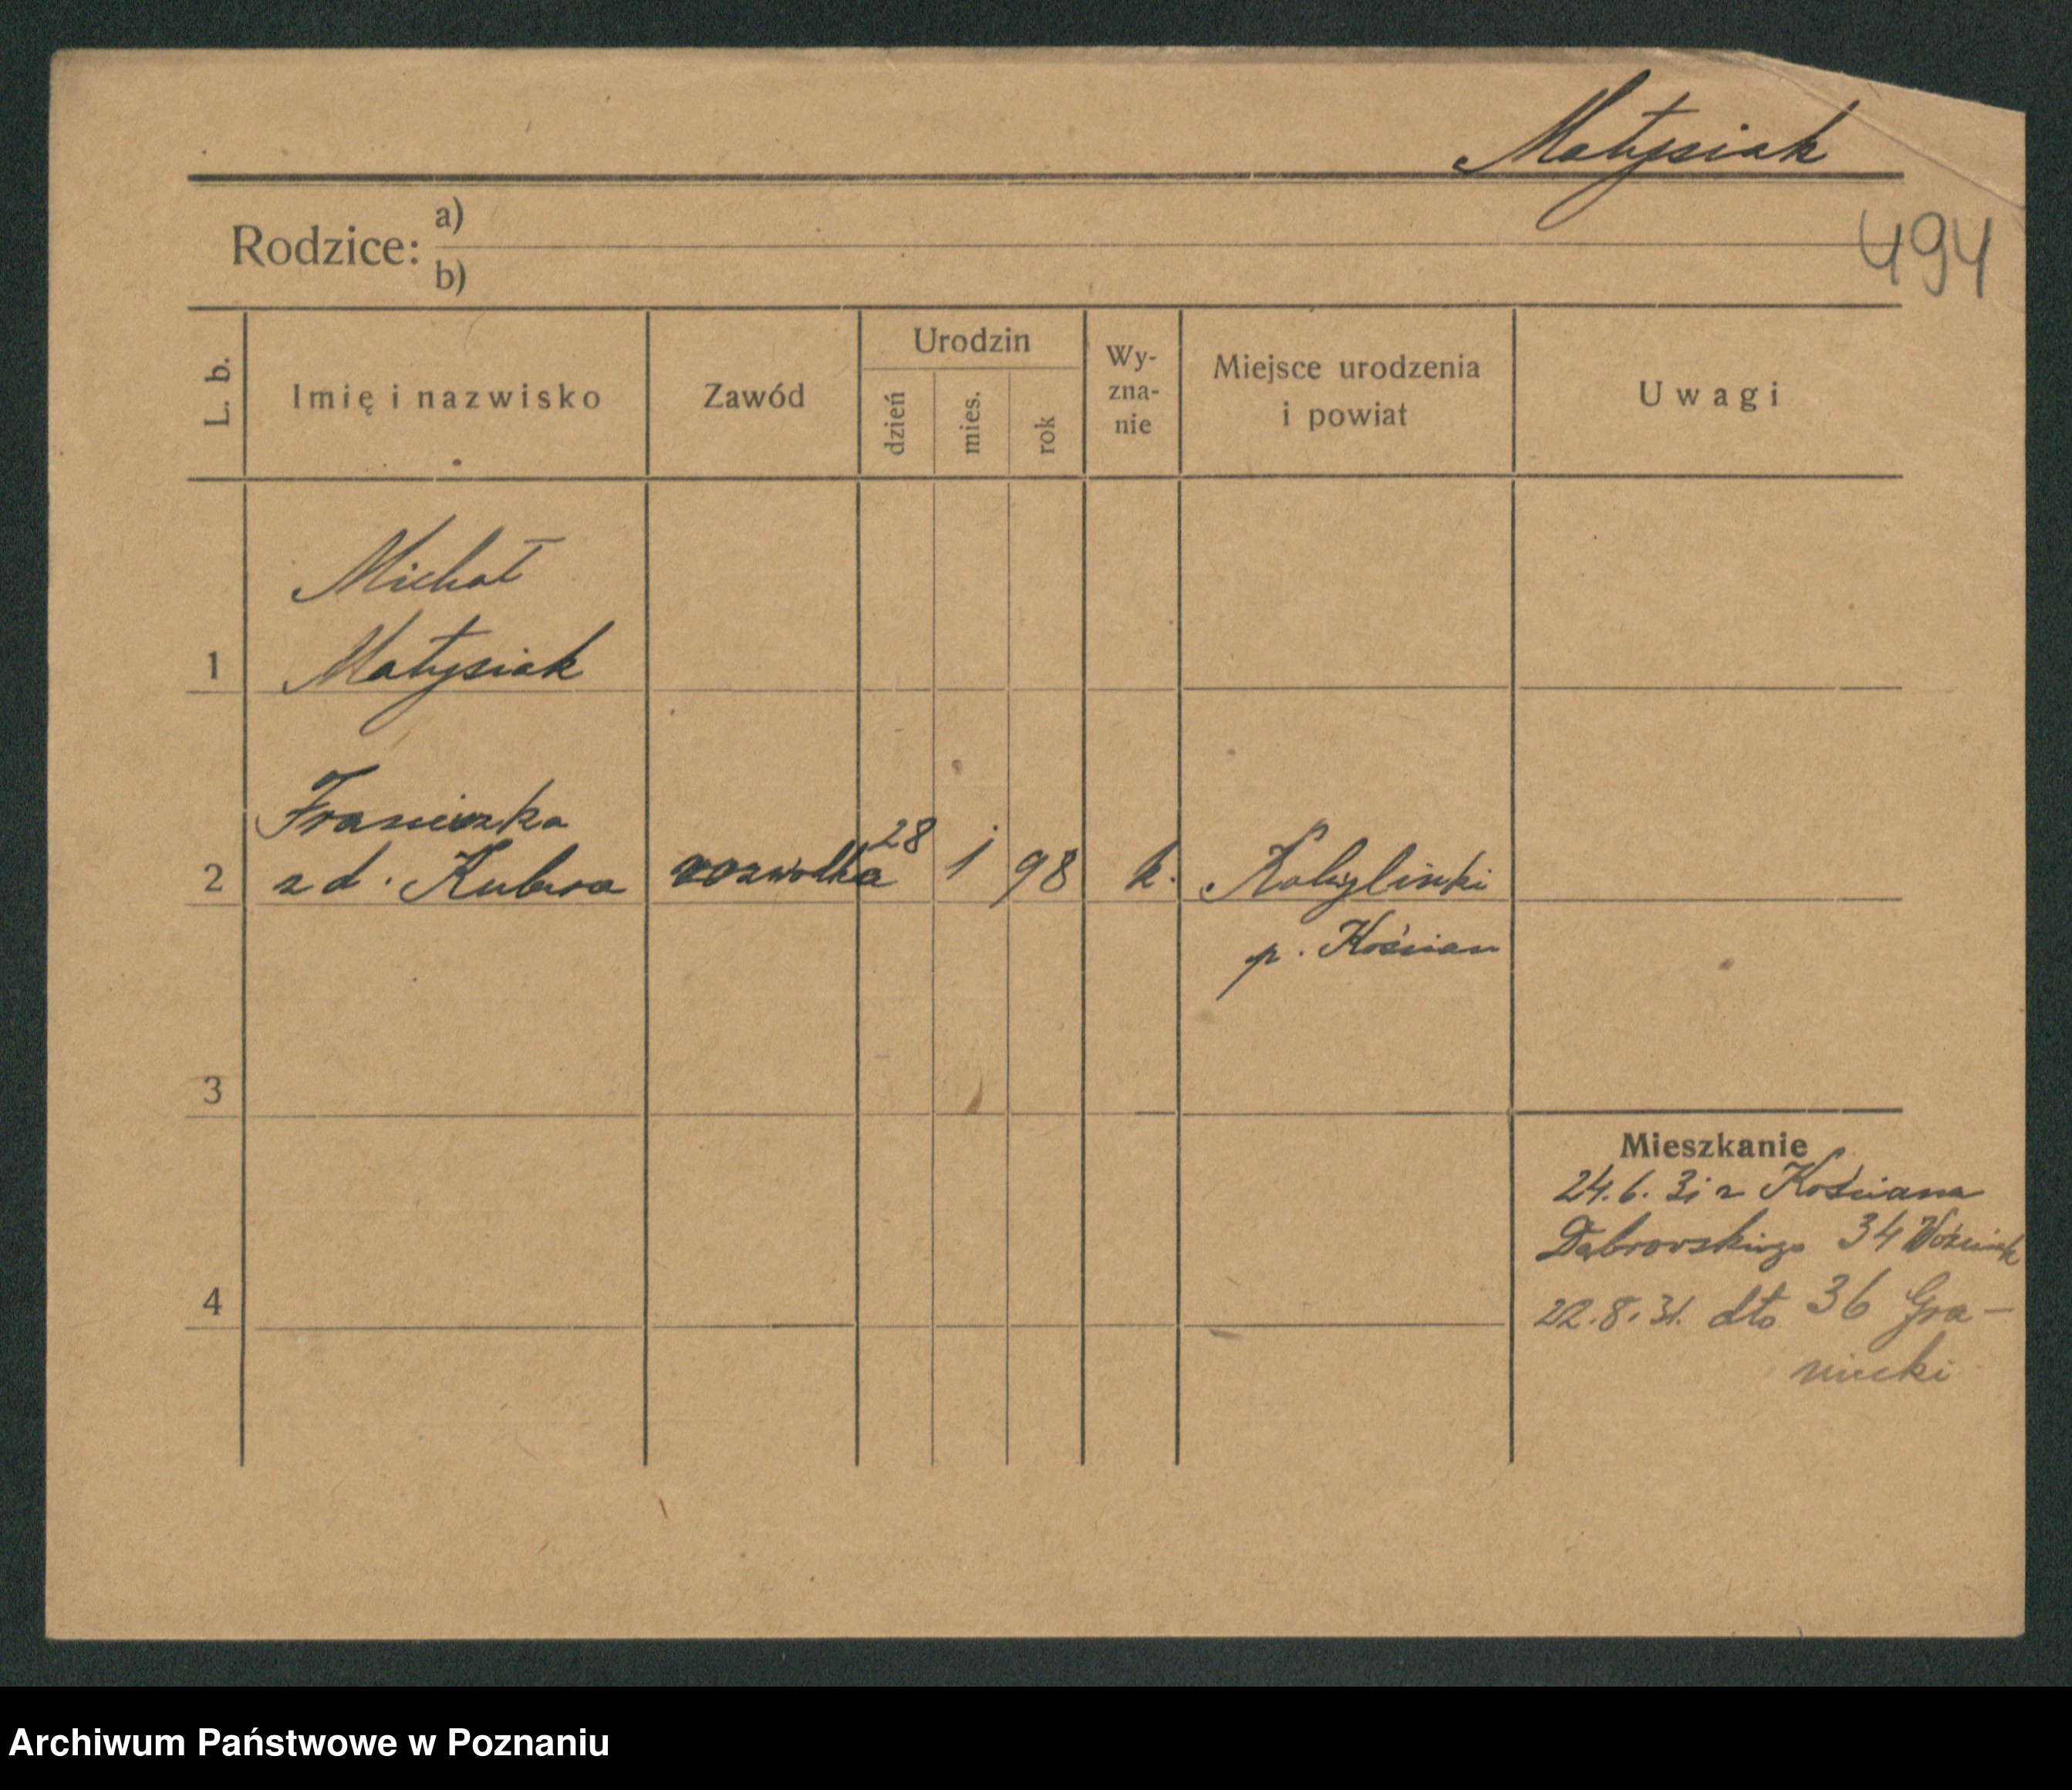 Matysiak
494
Rodzice: a)
b)
L. b.
Imię i nazwisko
Zawód
Urodzin
dzień
mies.
rok
Wy-
zna-
nie
Miejsce urodzenia
i powiat
Uwagi
Michał
1 Matysiak
Franiczka
2 zd. Kubsra rozwódka 28 1 98 k. Kobylinki
p. Kościan
3
Mieszkanie
24.6.31 z Kościana
Dąbrowskiego 34 Woźniak
4 22.8.31. dto 36 Gra-
niecki
Archiwum Państwowe w Poznaniu